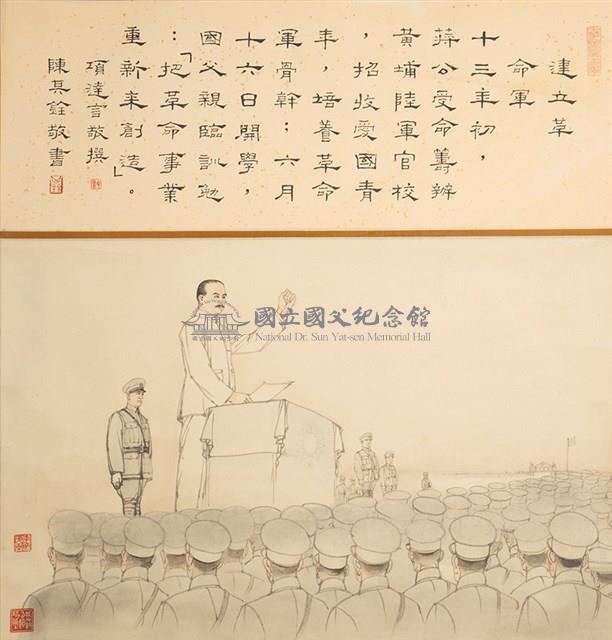 建立革
命軍
十三年初，
蔣公受命籌辦
黃埔陸軍官校
，招收愛國青
年，培養革命
軍骨幹；六月
十六日開學，
國父親臨訓勉
：「把革命事業
重新來創造」。
項達言敬撰
陳其銓敬書
國立國父紀念館
National Dr. Sun Yat-sen Memorial Hall